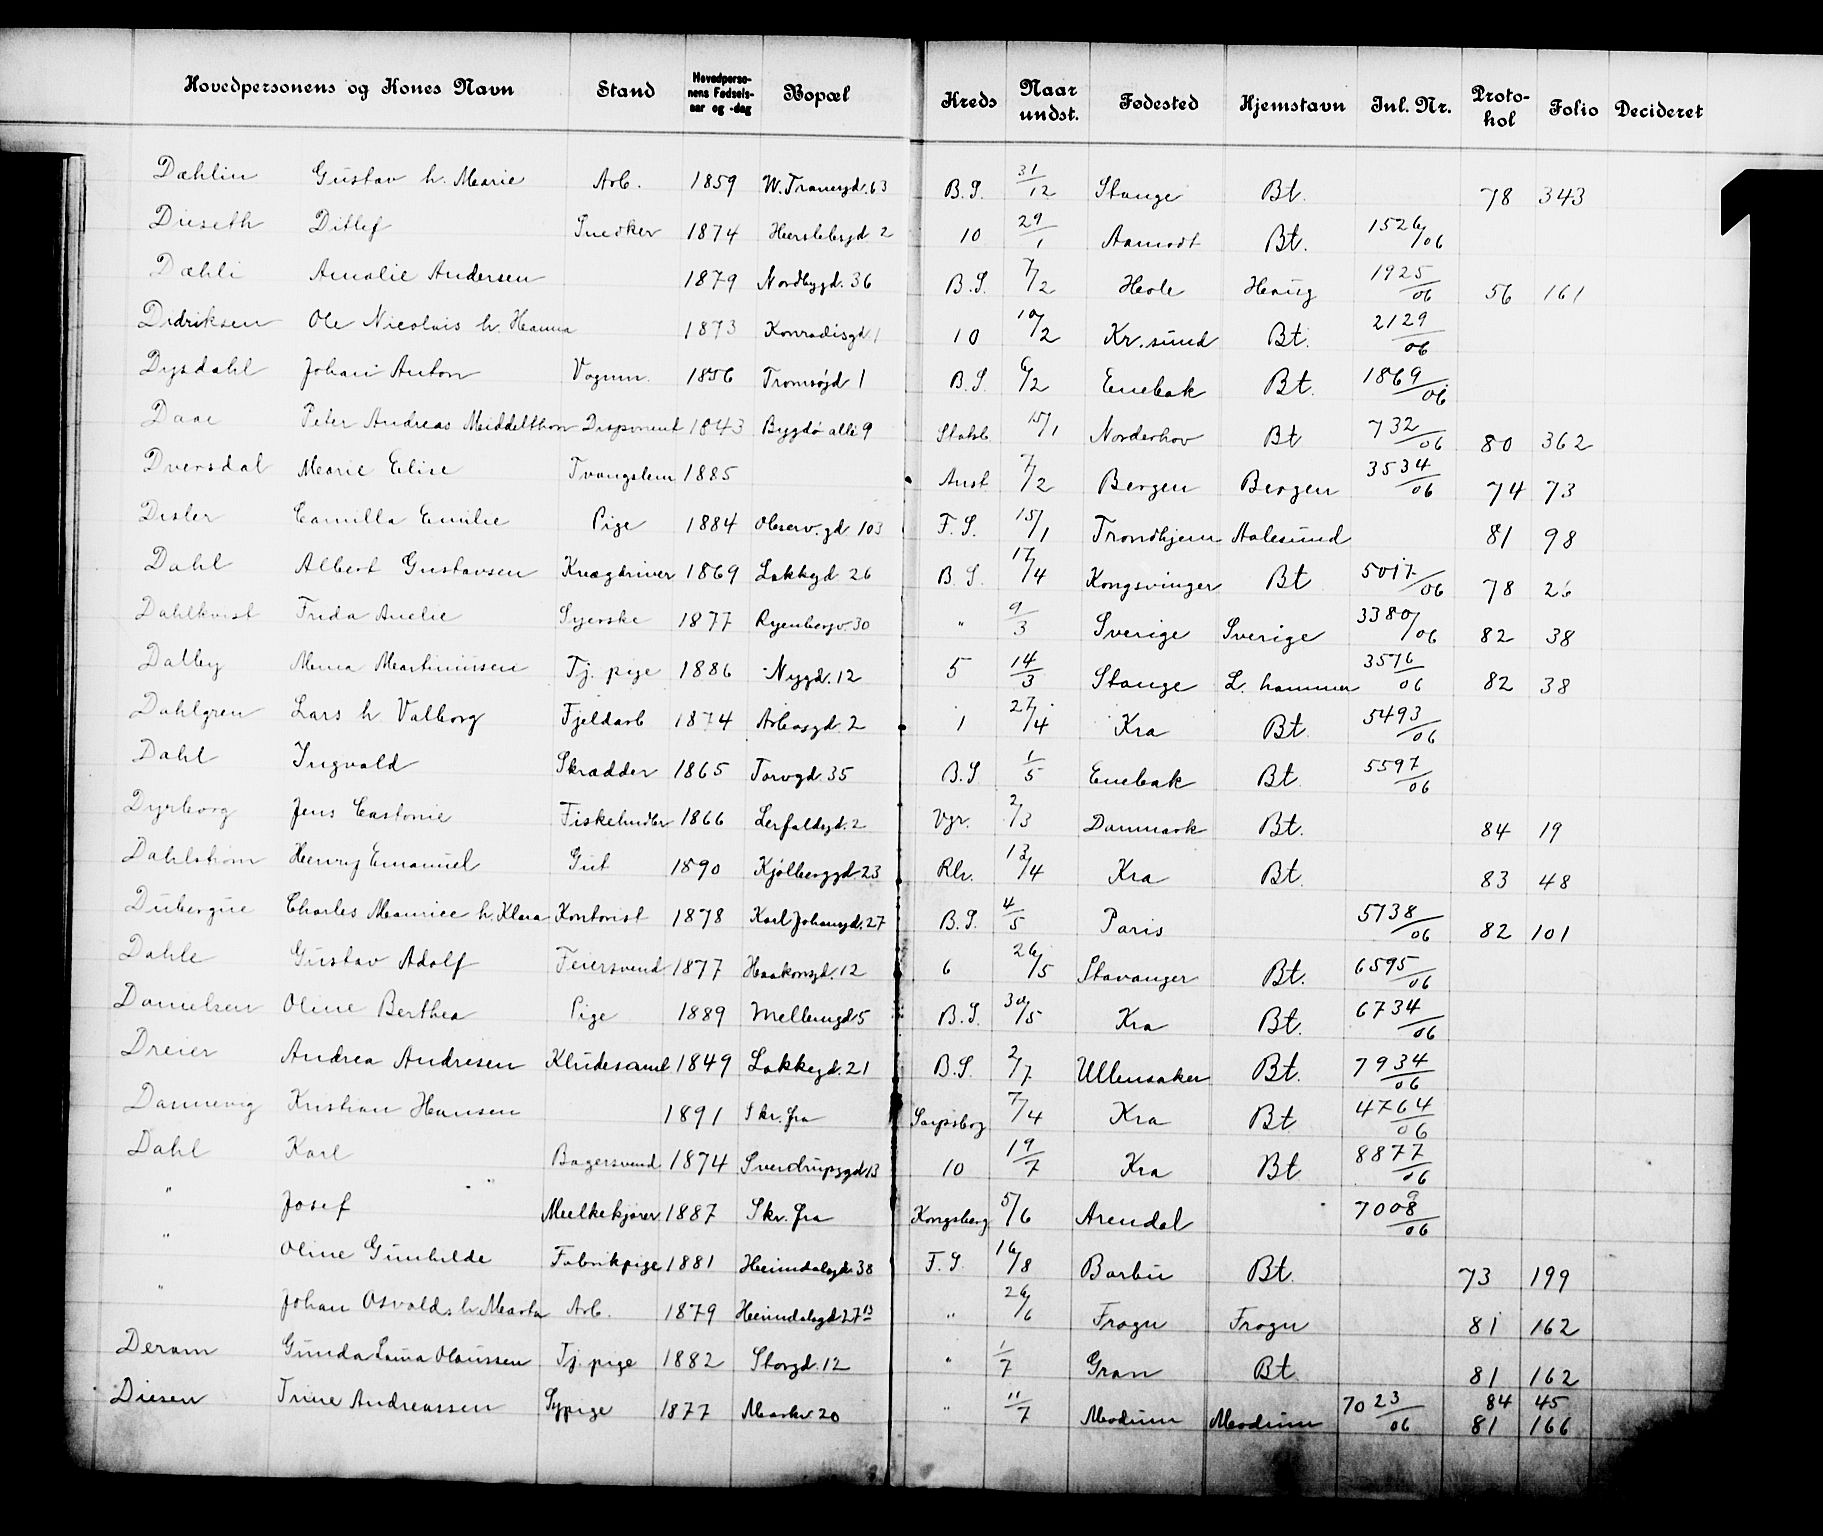 Hovedpersonens og Kones Navn Stand Hovedperso-nens Fødsels-aar og -dag Bopæl Kreds Naar undst. Fødested Hjemstavn Inl. Nr. Proto-kol Folio Decideret
Dæhlin Gustav h. Marie Arb. 1859 W. Tranesgd. 63 B.S. 31/12 Stange Bt. 78 343
Dieseth Ditlef Snedker 1874 Herslebsgd 2 10 29/1 Aamodt Bt. 1526/06
Dæhli Amalie Andersen 1879 Nordbygd. 36 B.S. 7/2 Hole Houg 1925/06 56 161
Didriksen Ole Nicolais h. Hanna 1873 Konradisgd. 1 10 10/2 Kr.sund Bt. 2129/06
Dysdahl Johan Anton Vognm. 1856 Tromsøgd 1 B.S. 6/2 Enebak Bt. 1869/06
Daae Peter Andreas Middelthon Disponent 1843 Bygdø alle 9 15/1 Norderhov Bt 732/06 80 362
Dversdal Marie Elise Tvangslem 1885 Anst. 7/2 Bergen Bergen 3534/06 74 73
Disler Camilla Emilie Pige 1884 Observ.gd 103 F.S. 15/1 Trondhjem Aalesund 81 98
Dahl Albert Gustavsen Knægtriver 1869 Lakkegd 26 B.S. 17/4 Kongsvinger Bt 5017/06 78 26
Dahlkvist Frida Amelie Syerske 1877 Ryenbergv. 30 " 9/3 Sverige Sverige 3380/06 82 38
Dalby Mina Martinusen Tj. pige 1886 Nygd. 12 5 14/3 Stange L. hammer 3576/06 82 38
Dahlgren Lars h. Valborg Fjeldarb 1874 Arbosgd. 2 1 27/4 Kra Bt. 5493/06
Dahl Ingvald Skrædder 1865 Torvgd. 35 B.S 1/5 Enebak Bt. 5597/06
Dyrborg Jens Castonie Fiskehndler 1866 Lerfaldsgd. 2 Vgr. 2/3 Danmark Bt. 84 19
Dahlstrøm Henry Emanuel Gut 1890 Kjølberggd. 23 Rlv. 13/4 Kra Bt. 83 48
Dubergue Charles Maurice h. Klara Kontorist 1878 Karl Johansgd. 27 B.S. 4/5 Paris 5738/06 82 101
Dahle Gustav Adolf Feiersvend 1877 Haakonsgd. 12 6 26/5 Stavanger Bt. 6595/06
Danielsen Oline Berthea Pige 1889 Mellemgd 5 B.S. 30/5 Kra Bt. 6734/06
Dreier Andrea Andresen Kludesaml 1849 Lakkegd. 21 B.S. 2/7 Ullensaker Bt. 7934/06
Dannevig Kristian Hansen 1891 Skr. fra Sarpsborg 7/4 Kra Bt. 4764/06
Dahl Karl Bagersvend 1874 Sverdrupsgd 13 10 19/7 Kra Bt 8877/06
" Josef Melkekjører 1887 Skr. fra Kongsberg 5/6 Arendal 7008/06
" Oline Gunhilde Fabrikpige 1881 Heimdalsgd. 38 F.S. 16/8 Barbu Bt. 73 199
" Johan Osvald. h. Marta Arb. 1879 Heimdalsgd 27 13 " 26/6 Frogn Frogn 81 162
Deram Gunda Lovia Olaussen Tj. pige 1882 Storgd. 12 " 1/7 Gran Bt. 81 162
Diesen Trine Andreassen Sypige 1877 Markv 20 " 11/7 Modum Modum 7023/06 84 45
81 166